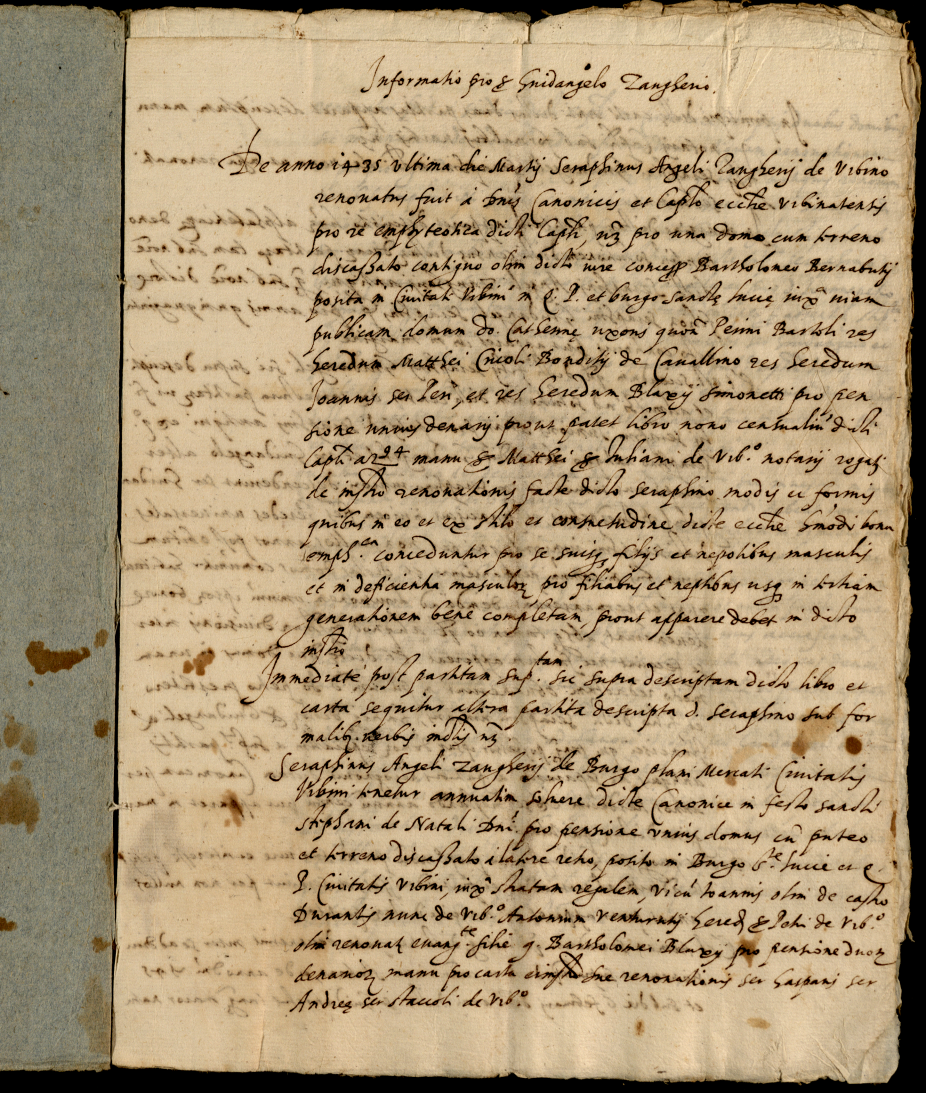 Informatio pro ser Guidangelo Zangherio.
De anno 1435 ultima die Martij Seraphinus Angeli Zangherij de Vrbino
renovatus fuit à Dnis Canonicis et Caplo ecctie Vrbinatensis
pro re emphyteotica dicti Capli, nz pro una domo cum terreno
discassato contiguo olim dicto iure concess Bartholomeo Bernabutij
posita in Civitate Vrbini in Q. P. et burgo sanctę lucię iuxa viam
publicam domum do. Catherinę uxoris quon Perini Bartoli res
heredum Matthei Cicoli Bonditij de Cavallino res heredum
Ioannis ser Peri, et res heredum Blaxij simonetti pro pen
sione unius denarij prout patet libro nono censualiu dicti
Capli a 94 manu ser Matthei ser Iuliani de Vrb.o notarij rogati
de instro renovationis facte dicto seraphino modis et formis
quibus in eo et ex stilo et consuetudine dicte ecctie hmodi bona
emph.ca conceduntur pro se suisq filijs et nepotibus masculis
et in deficientia masculor pro filiabus et neptibus usq in tertiam
generationem bene completam prout apparere debet in dicto
instro
Immediate post partitam sup.tam sic supra descriptam dicto libro et
carta sequitur altera partita descripta d. seraphino sub for
malib. verbis nz
Seraphinus Angeli Zangherij de Burgo plani Mercati Civitatis
Vrbini tenetur annuatim solvere dicte Canonice in festo sancti
stephani de Natali Dni pro pensione unius domus cu puteo
et terreno discassato a latere retro, posito in Burgo S.te lucie et Q.
P. Civitatis Vrbini, iuxa stratam regalem, vicu Ioannis olim de castro
Durantis nunc de Vrb.o Antonium Venturutij hered ser Petri de Vrb.o
olim renovat evang.te filie q. Bartholomei Blaxij pro pensione duor
denarior manu pro carta renovationis ser Gasparis ser
Andreę ser staccoli de Vrb.o